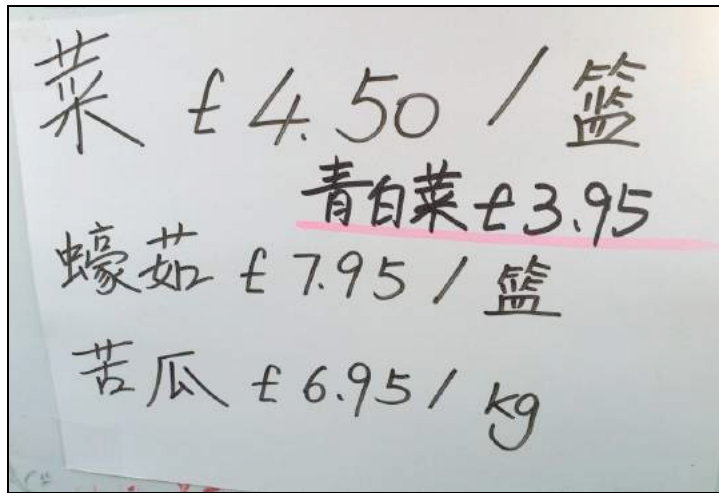 菜 £4.50 / 篮
青白菜 £3.95
蠔茹 £7.95 / 篮
苦瓜 £6.95 / kg